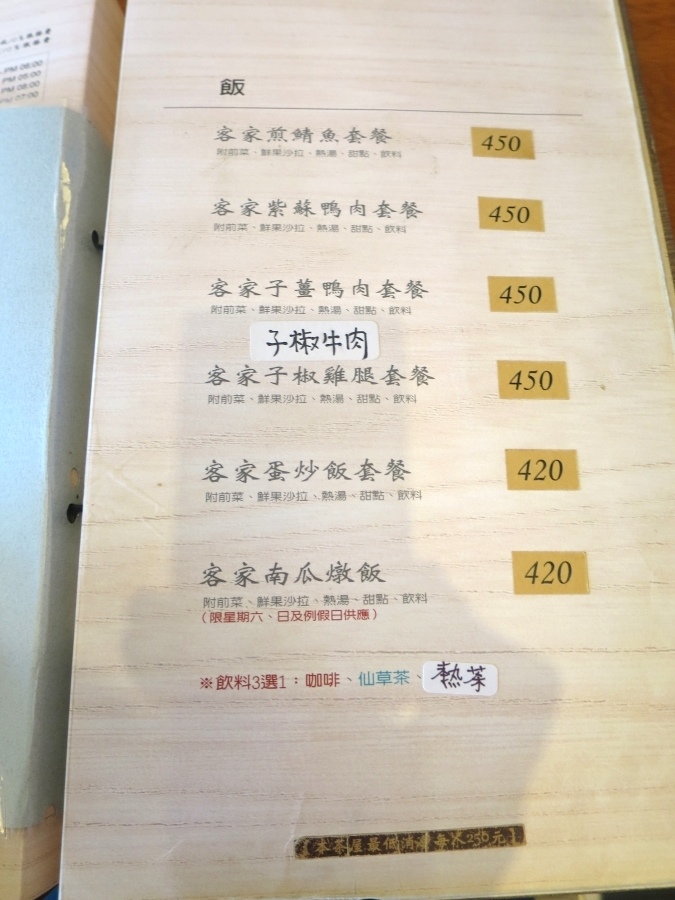 PM 06:00
PM 05:00
PM 06:00
PM 07:00
飯
客家煎鯖魚套餐 450
附前菜、鮮果沙拉、熱湯、甜點、飲料
客家紫蘇鴨肉套餐 450
附前菜、鮮果沙拉、熱湯、甜點、飲料
客家子薑鴨肉套餐 450
附前菜、鮮果沙拉、熱湯、甜點、飲料
子椒牛肉
客家子椒雞腿套餐 450
附前菜、鮮果沙拉、熱湯、甜點、飲料
客家蛋炒飯套餐 420
附前菜、鮮果沙拉、熱湯、甜點、飲料
客家南瓜燉飯 420
附前菜、鮮果沙拉、熱湯、甜點、飲料
(限星期六、日及例假日供應)
※飲料3選1：咖啡、仙草茶、熱茶
本茶屋最低消費每人250元